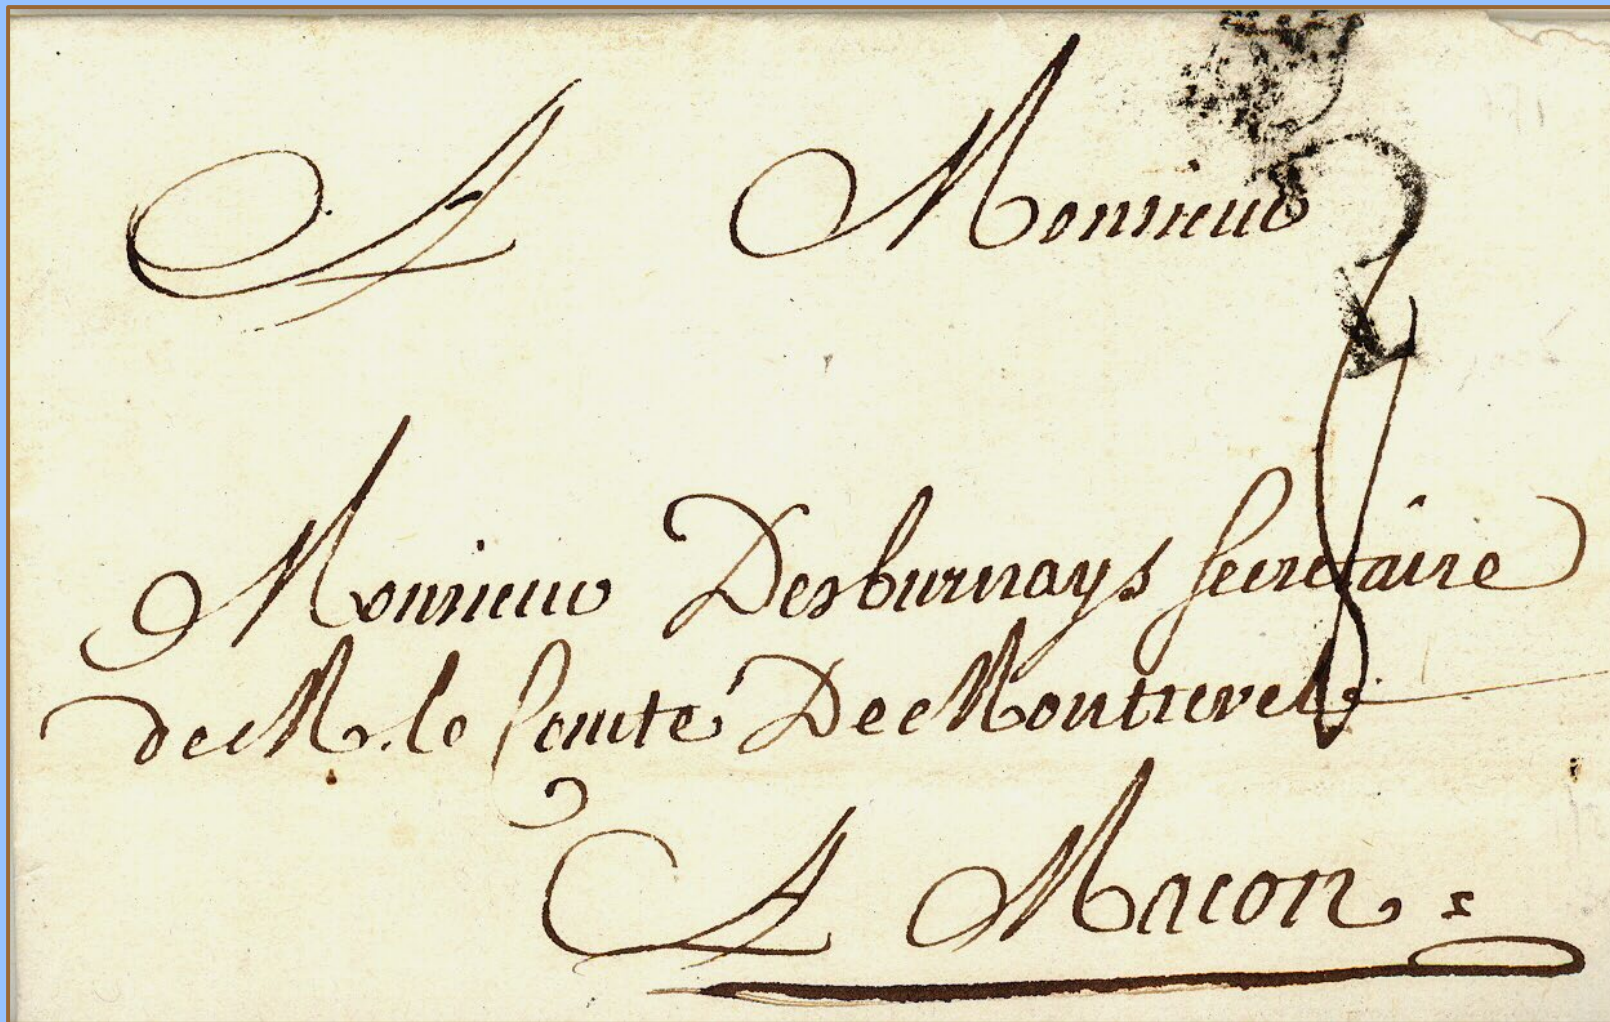 A Monsieur
Monsieur Desburnays secretaire
de M. le Comte De Montrevel
A Macon